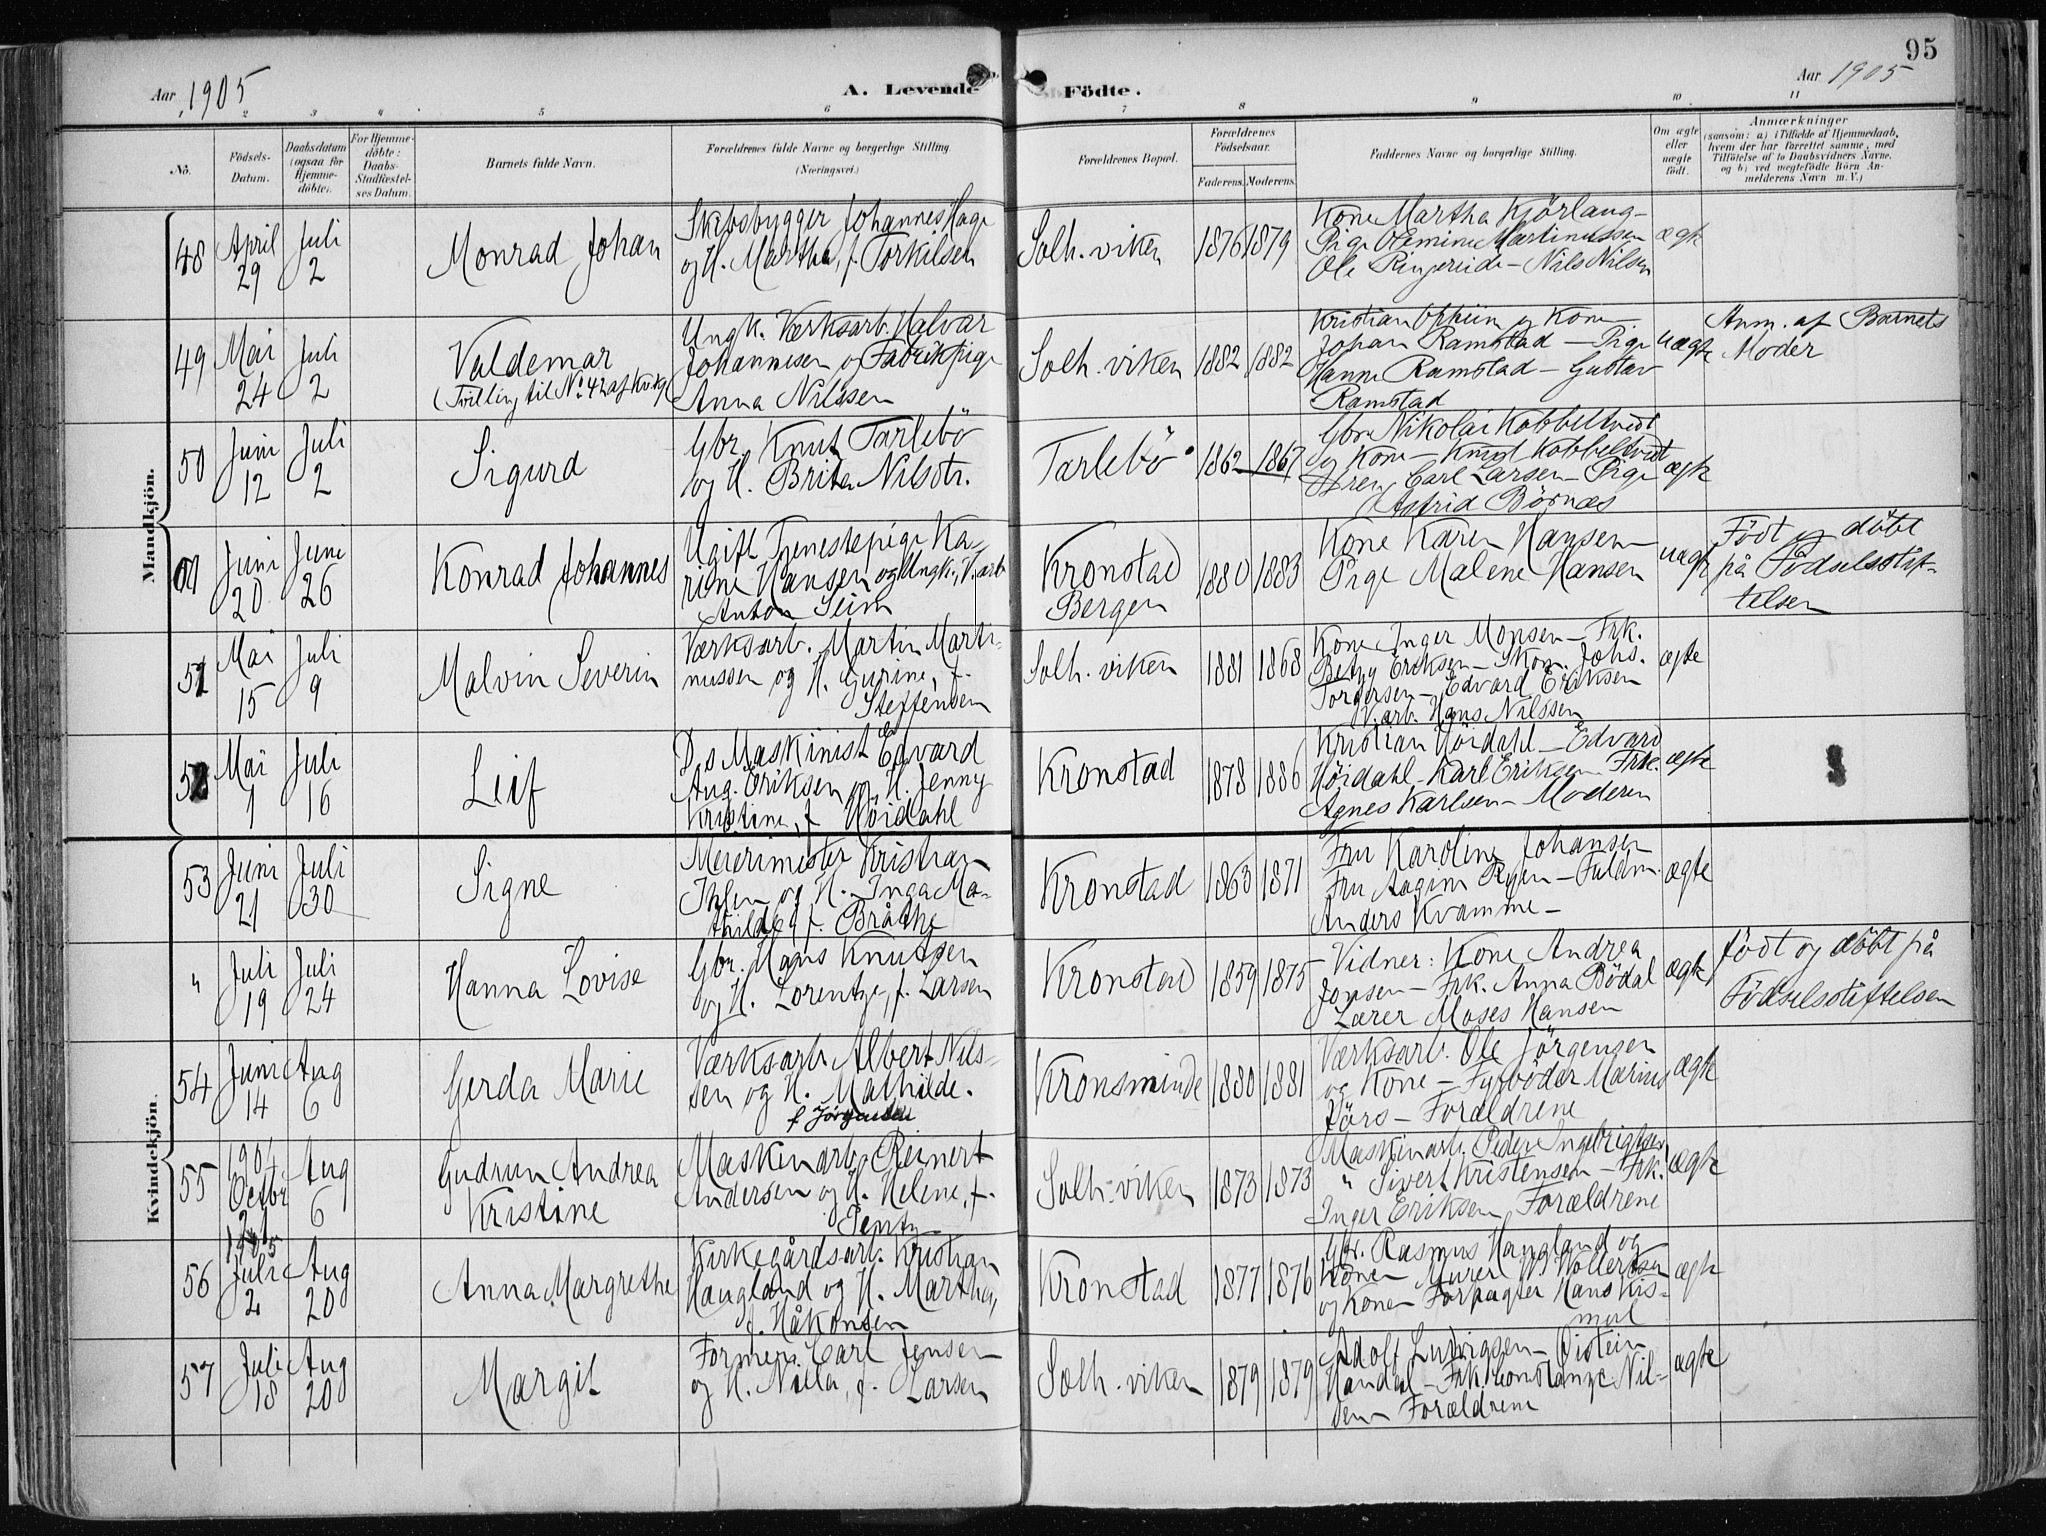 95
Aar 1905
A. Levende Födte.
Aar 1905
1 2 3 4 5 6 7 8 9 10 11
No.
Födsels-Datum.
Daabsdatum (ogsaa för Hjemme-döbte).
For Hjemme-döbte: Daabs-Stadfæstel-ses Datum.
Barnets fulde Navn.
Forældrenes fulde Navne og borgerlige Stilling.
(Næringsvei.)
Forældrenes Bopæl.
Forældrenes Födselsaar.
Faderens. Moderens.
Faddernes Navne og borgerlige Stilling.
Om ægte eller uægte födt.
Anmærkninger
(saasom: a) i Tilfælde af Hjemmedaab, hvem der har forrettet samme, med Tilföielse af to Daabsvidners Navne, og b) ved uægtefödte Börn An-melderens Navn m. V.)
Mandkjön.
48 April 29 Juli 2
Monrad Johan
Skibsbygger Johannes Hage
og H. Martha, f. Torkilsen
Solh. viken 1876 1879
Kone Martha Kjörlaug -
Pige Olemine Martinussen
Ole Ringereide - Nils Nilsen
ægte
49 Mai 24 Juli 2
Valdemar
(Tvilling til No. 42 af Kv.kj.)
Ungk. Værksarb. Halvar
Johannesen og Fabrikpige
Anna Nilssen
Solh. viken 1882 1882
Kristian Opheim og Kone
Johan Ramstad - Pige
Hanna Ramstad - Gustav
Ramstad
uægte
Anm. af Barnets
Moder
50 Juni 12 Juli 2
Sigurd
Gbr. Knut Tarlebö
og H. Brita Nilsdtr.
Tarlebö 1862 1867
Gbr. Nikolai Kobbeltvedt
og Kone - Knut Kobbeltvedt
Dreng Carl Larsen - Pige
Astrid Börnæs
ægte
Juni 20 Juni 26
Konrad Johannes
Ugift Tjenestepige Ka-
rine Hansen og Ungk. V.arb.
Anton Seim
Kronstad
Bergen
1880 1883
Kone Karen Hansen -
Pige Malene Hansen
uægte
Födt og döbt
på Födselsstif-
telsen
51 Mai 15 Juli 9
Malvin Severin
Værksarb. Martin Marti-
nussen og H. Gurine, f.
Steffensen
Solh. viken 1881 1868
Kone Inger Monsen - Frk.
Betzy Eriksen - Skom. Johs.
Torgersen - Edvard Eriksen
V.arb. Hans Nilssen
ægte
52 Mai 1 Juli 16
Leif
D.s Maskinist Edvard
Aug. Eriksen og H. Jenny
Kristine, f. Höidahl
Kronstad 1878 1886
Kristian Höidahl - Edvard
Höidahl - Karl Eriksen Frk.
Agnes Karlsen - Moderen
ægte
Kvindekjön.
53 Juni 21 Juli 30
Signe
Meierimester Kristian
Ihlen og H. Inga Ma-
thilde, f. Bråthe
Kronstad 1863 1871
Fru Karoline Johansen
Fru Aagine Ryen - Fuldm.
Anders Kvamme -
ægte
" Juli 19 Juli 24
Hanna Lovise
Gbr. Hans Knutsen
og H. Lorentze, f. Larsen
Kronstad 1859 1875
Vidner: Kone Andrea
Jonsen - Frk. Anna Bödal
Lærer Moses Hansen
ægte
födt og döbt på
Födselsstiftelsen
54 Juni 14 Aug 6
Gerda Marie
Værksarb. Albert Nils-
sen og H. Mathilde.
f Jörgensen
Kronsminde 1880 1881
Værksarb. Ole Jörgensen
og Kone - Fyrböder Marius
Förs - Forældrene
ægte
55 1904 Octbr 21 Aug 6
Gudrun Andrea
Kristine
Maskinarb. Reinert
Andersen og H. Helene, f.
Jentz
Solh. viken 1873 1873
Maskinarb. Peder Ingebrigtsen
" Sivert Kristensen - Frk.
Inger Eriksen, Forældrene
ægte
56 1905 Juli 2 Aug 20
Anna Margrethe
Kirkegårdsarb. Kristian
Haugland og H. Martha,
f. Håkonsen
Kronstad 1877 1876
Gbr. Rasmus Haugland og
Kone - Murer W. Wollertsen
og Kone Forpagter Hans Kis-
mul
ægte
57 Juli 18 Aug 20
Margit
Former Carl Jensen
og H. Nilla, f. Larsen
Solh. viken 1879 1879
Adolf Ludvigsen - Öistein
Handal - Frk Constanze Nil-
sen - Forældrene
ægte